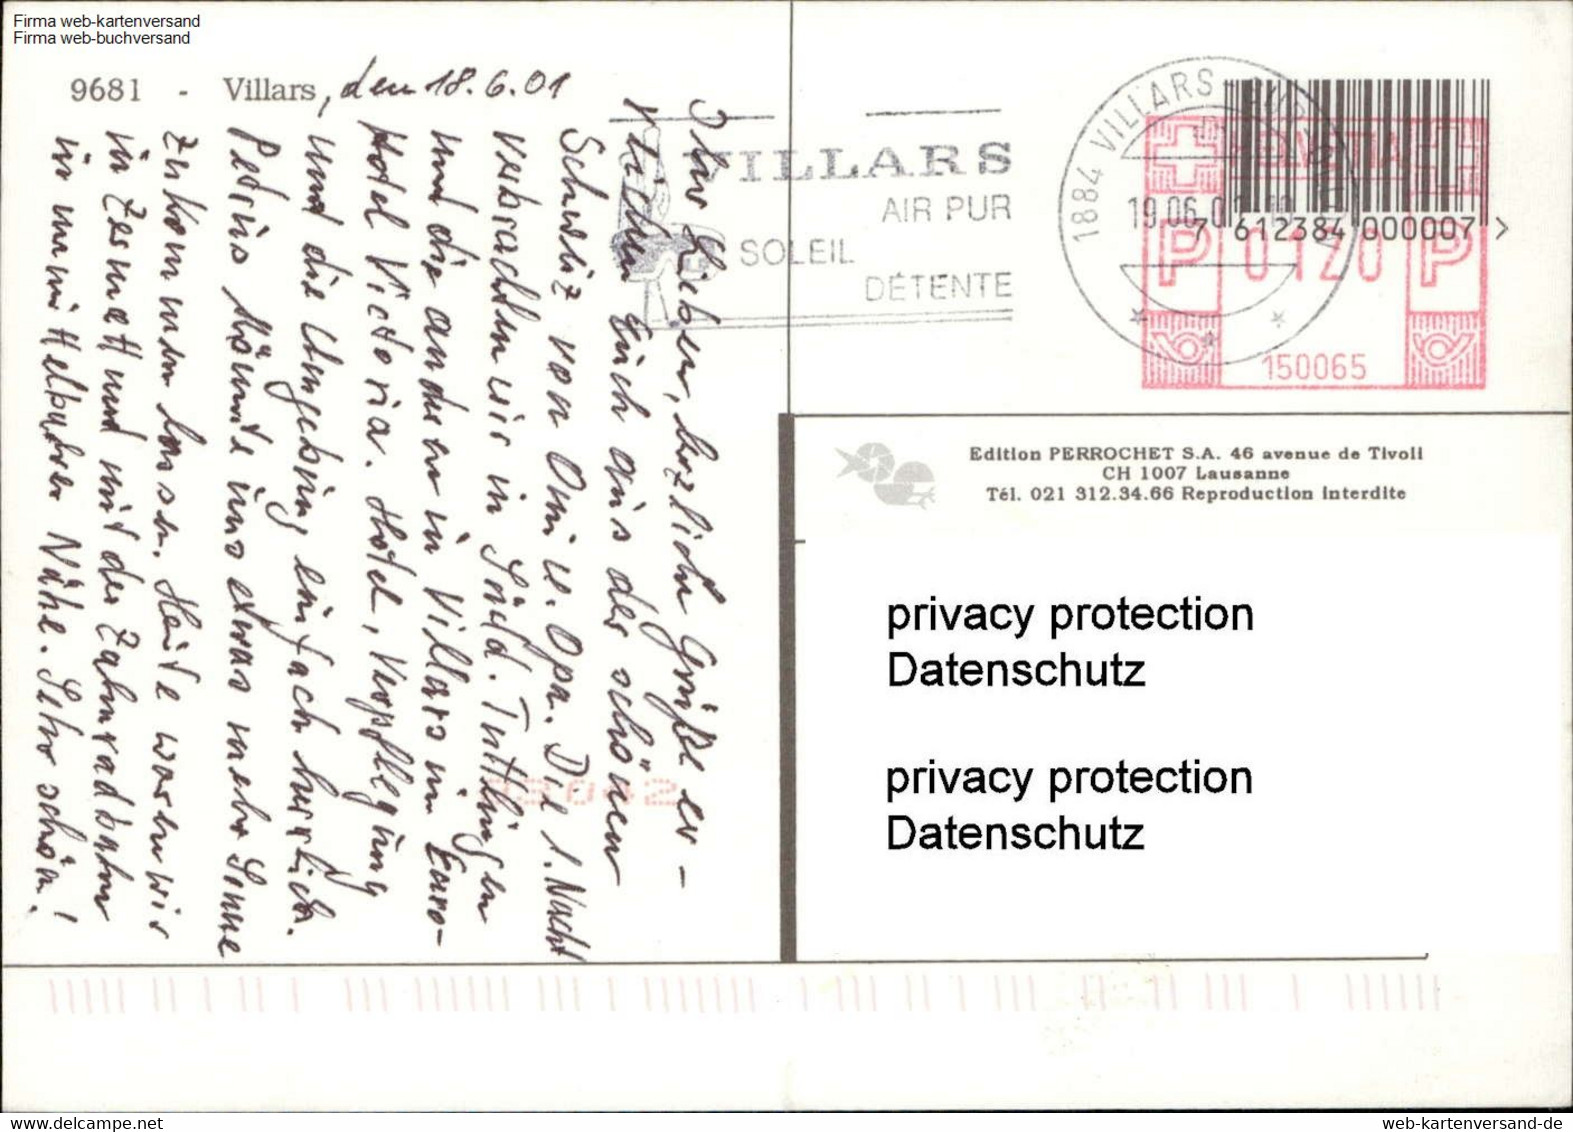 Firma web-kartenversand
Firma web-buchversand
9681 - Villars, den 18.6.01
Ihr Lieben, herzliche Grüße er-
reichen Euch aus der schönen
Schweiz von Omi u. Opa. Die 1. Nacht
verbrachten wir in Südd. Tuttlingen
und die anderen in Villars im Euro-
Hotel Victoria. Hotel, Verpflegung
und die Umgebung einfach herrlich.
Petrus könnte uns etwas mehr Sonne
zukommen lassen. Heute waren wir
in Zermatt und mit der Zahnradbahn
in unmittelbarer Nähe. Sehr schön!
VILLARS
AIR PUR
SOLEIL
DÉTENTE
1884 VILLARS
19.06.01
HELVETIA
7 612384 000007 >
P 0120 P
150065
Edition PERROCHET S.A. 46 avenue de Tivoli
CH 1007 Lausanne
Tél. 021 312.34.66 Reproduction interdite
privacy protection
Datenschutz
privacy protection
Datenschutz
www-kartenversand-de